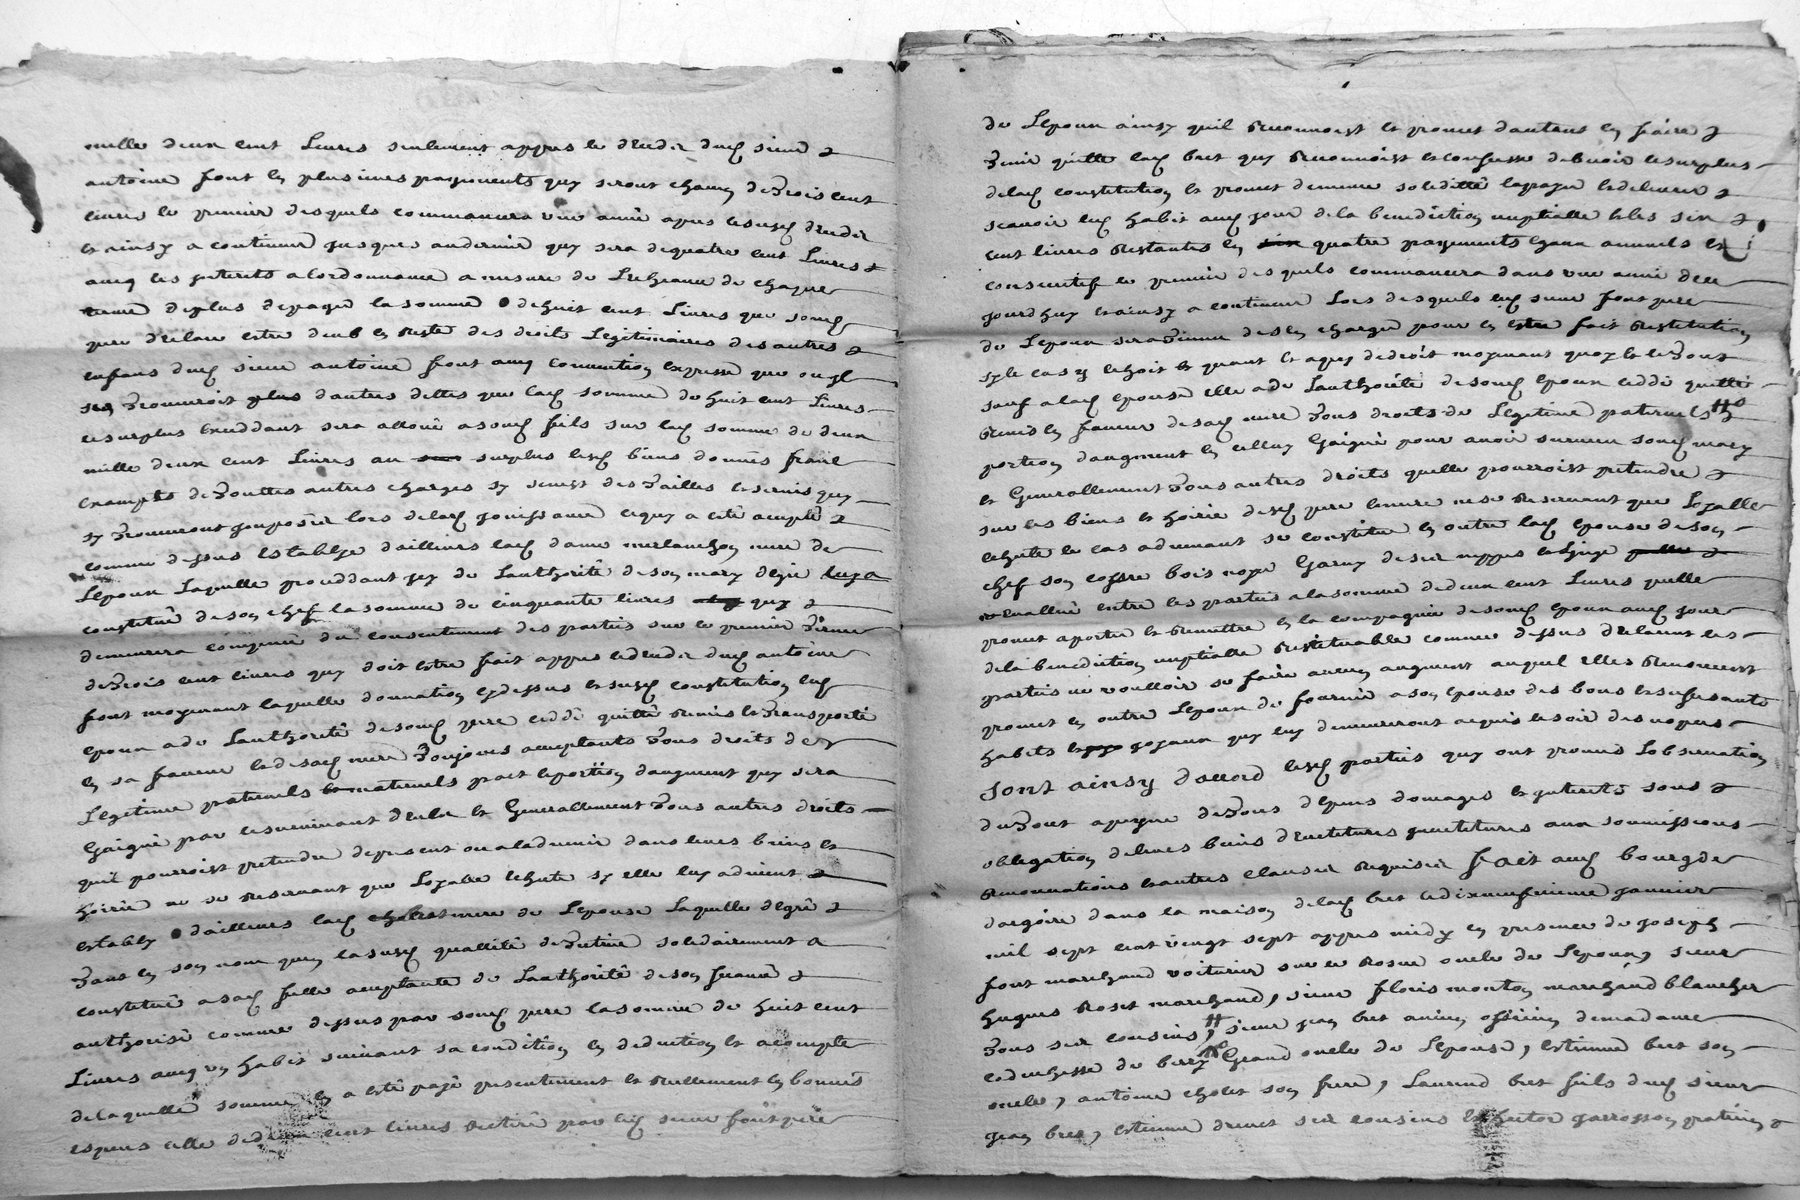 mille deux cent Livres seulement appres le deceds dud sieur
antoine font en plusieurs payements quy seront chacun de trois cent
livres le premier desquels commancera une année apres le susd deceds
et ainsy a continuer jusques au dernier quy sera de quatre cent Livres
avec les jnterets a l'ordonnance a mesure de l'escheance de chaque
terme de plus de payer la somme de huit cent Livres que somd
pere declare estre deub en reste des droits Legitimaires des autres
enfans dud sieur antoine font avec convention expresse que ou jl
se trouveroit plus d'autres dettes que lad somme de huit cent Livres
le surplus exceddant sera alloué a somd fils sur lad somme de deux
mille deux cent Livres au surplus lesd biens donnés franc
exempts de touttes autres charges sy ce n'est des tailles et servis quy
sy trouveront jmposés lors de lad jouissance ce quy a esté accepté
comme dessus establye d'ailliurs lad dame merlanchon mere de
L'epoux Laquelle proceddant jcy de L'authorité de son mary de gré
constitué de son chef la somme de cinquante livres quy
demeurera compensé du consentement des parties sur le premier terme
de trois cent livres quy doit estre fait appres le deceds dud antoine
font moyenant laquelle donnation cy dessus et susd constitution led
epoux a de L'authorité de somd pere ceddé quitté remis et transporté
en sa faveur et de sad mere toujours acceptants tous droits de
Legitime paternels maternels part et portion d'augment quy sera
Gaigné par le survivant d'eulx et Generallement tous autres droits
quil pourroist pretendre de present ou a l'advenir dans leurs biens et
hoirie ne se reservant que Loyalle escheute sy elle luy advient
establye d'ailleurs lad cholet mere de L'epouse Laquelle de gré
tant en son nom quen la susd quallité de tutrice solidairement a
constitué a sad fille acceptante de L'authorité de son fiancé
authorisé comme dessus par somd pere la somme de huit cent
Livres avec un habit suivant sa condition en deduction et acompte
de laquelle somme en a esté payé presentement et reellement en bonnes
especes celle de cent livres retiré par led sieur font pere
de L'epoux ainsy quil reconnoist et promet d'autant en faire
tenir quitte lad bret quy reconnoist et confesse debvoir le surplus
de lad constitution et promet de meme solidité la payer et delivrer
scavoir led habit aud jour de la benediction nuptialle et les six
cent livres restantes en quatre payements egaux annuels et
consecutifs le premier desquels commancera dans une année de ce
jourd'huy et ainsy a continuer Lors desquels led sieur font pere
de L'epoux sera tenu des en charger pour en estre fait restitution
sy le cas y echoit et quant et a quy de droit moyenant quoy et le tout
sauf a lad epouse elle a de L'authorité de somd epoux ceddé quitté
remis en faveur de sad mere tous droits de Legitime paternels
portion d'augment en celluy Gaigné pour avoir survecu somd mary
et Generallement tous autres droits quelle pourroist pretendre
sur les biens et hoirie desd pere et mere ne se reservant que Loyalle
escheute le cas advenant se constitue en outre lad epouse de son
chef son coffre bois noyer Garny de ses nippes et linge
evallué entre les parties a la somme de deux cent Livres quelle
promet aporter et remettre en la compagnie de somd epoux aud jour
de la benediction nuptialle restituable comme dessus declarent les
parties ne voulloir se faire aucun augment auquel elles renoncent
promet en outre L'epoux de fournir a son epouse des bons et suffisants
habits et joyaux quy luy demeureront acquis le soir des nopces
sont ainsy d'accord lesd parties quy ont promis L'observation
du tout a peyne de tous depens domages et jnterets sous
obligation de leurs biens
renonciations et autres clauses requises fait aud bourg de
dargoire dans la maison de lad bret le dixneufvieme janvier
mil sept cent vingt sept appres midy en presence de joseph
font marchand voiturier sur le Rosne oncle de L'epoux, sieur
hugues Roset marchand, sieur floris monton marchand blancher
tous ses cousins, sieur jean bret ancien officier de madame
la duchesse de berry Grand oncle de L'epouse, estienne bret son
oncle, antoine cholet son frere, Laurend bret fils dud sieur
jean bret, estienne drevet ses cousins et hector jarrosson praticien